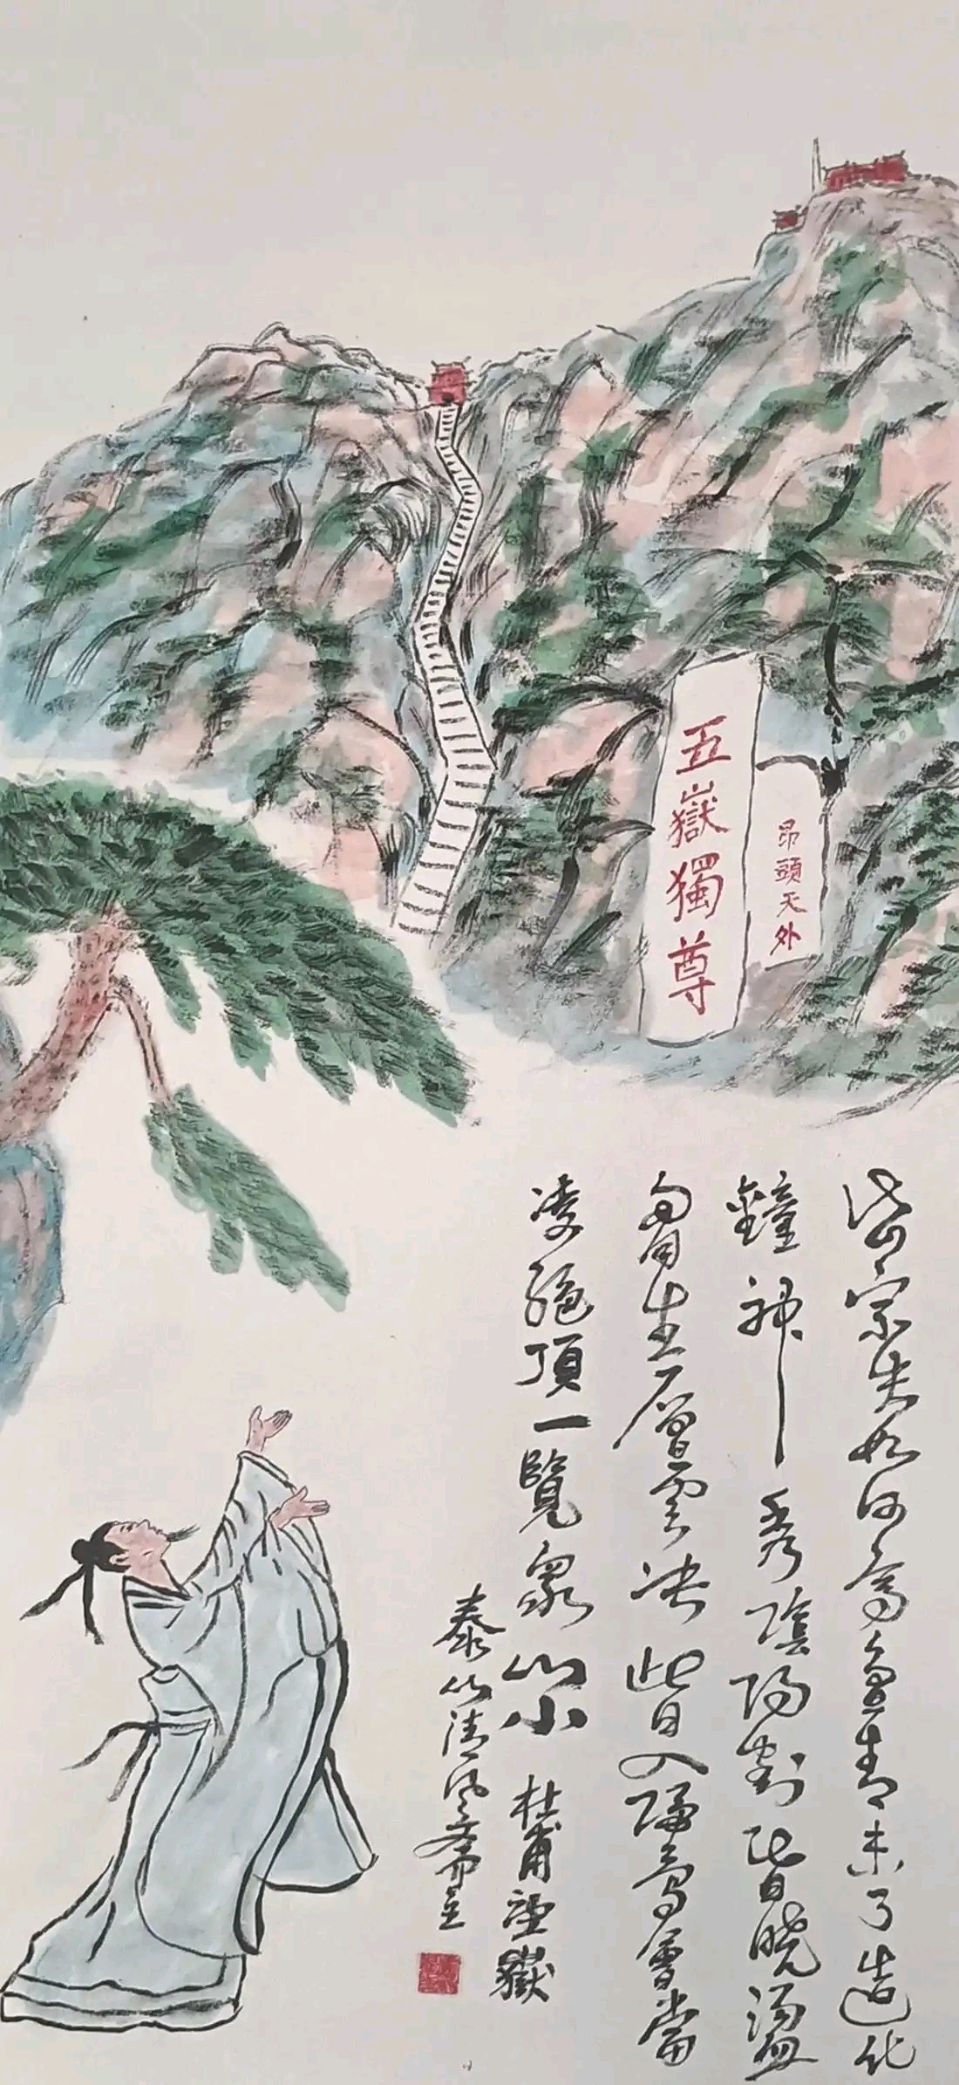 五嶽獨尊
昂頭天外
岱宗夫如何齊魯青未了造化
鐘神秀陰陽割昏曉盪
胷生層雲決眥入歸鳥會當
凌絕頂一覽眾山小 杜甫望嶽
泰山清風齋主